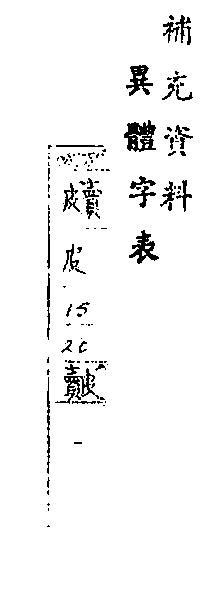 補充資料
異體字表
皮
15
20